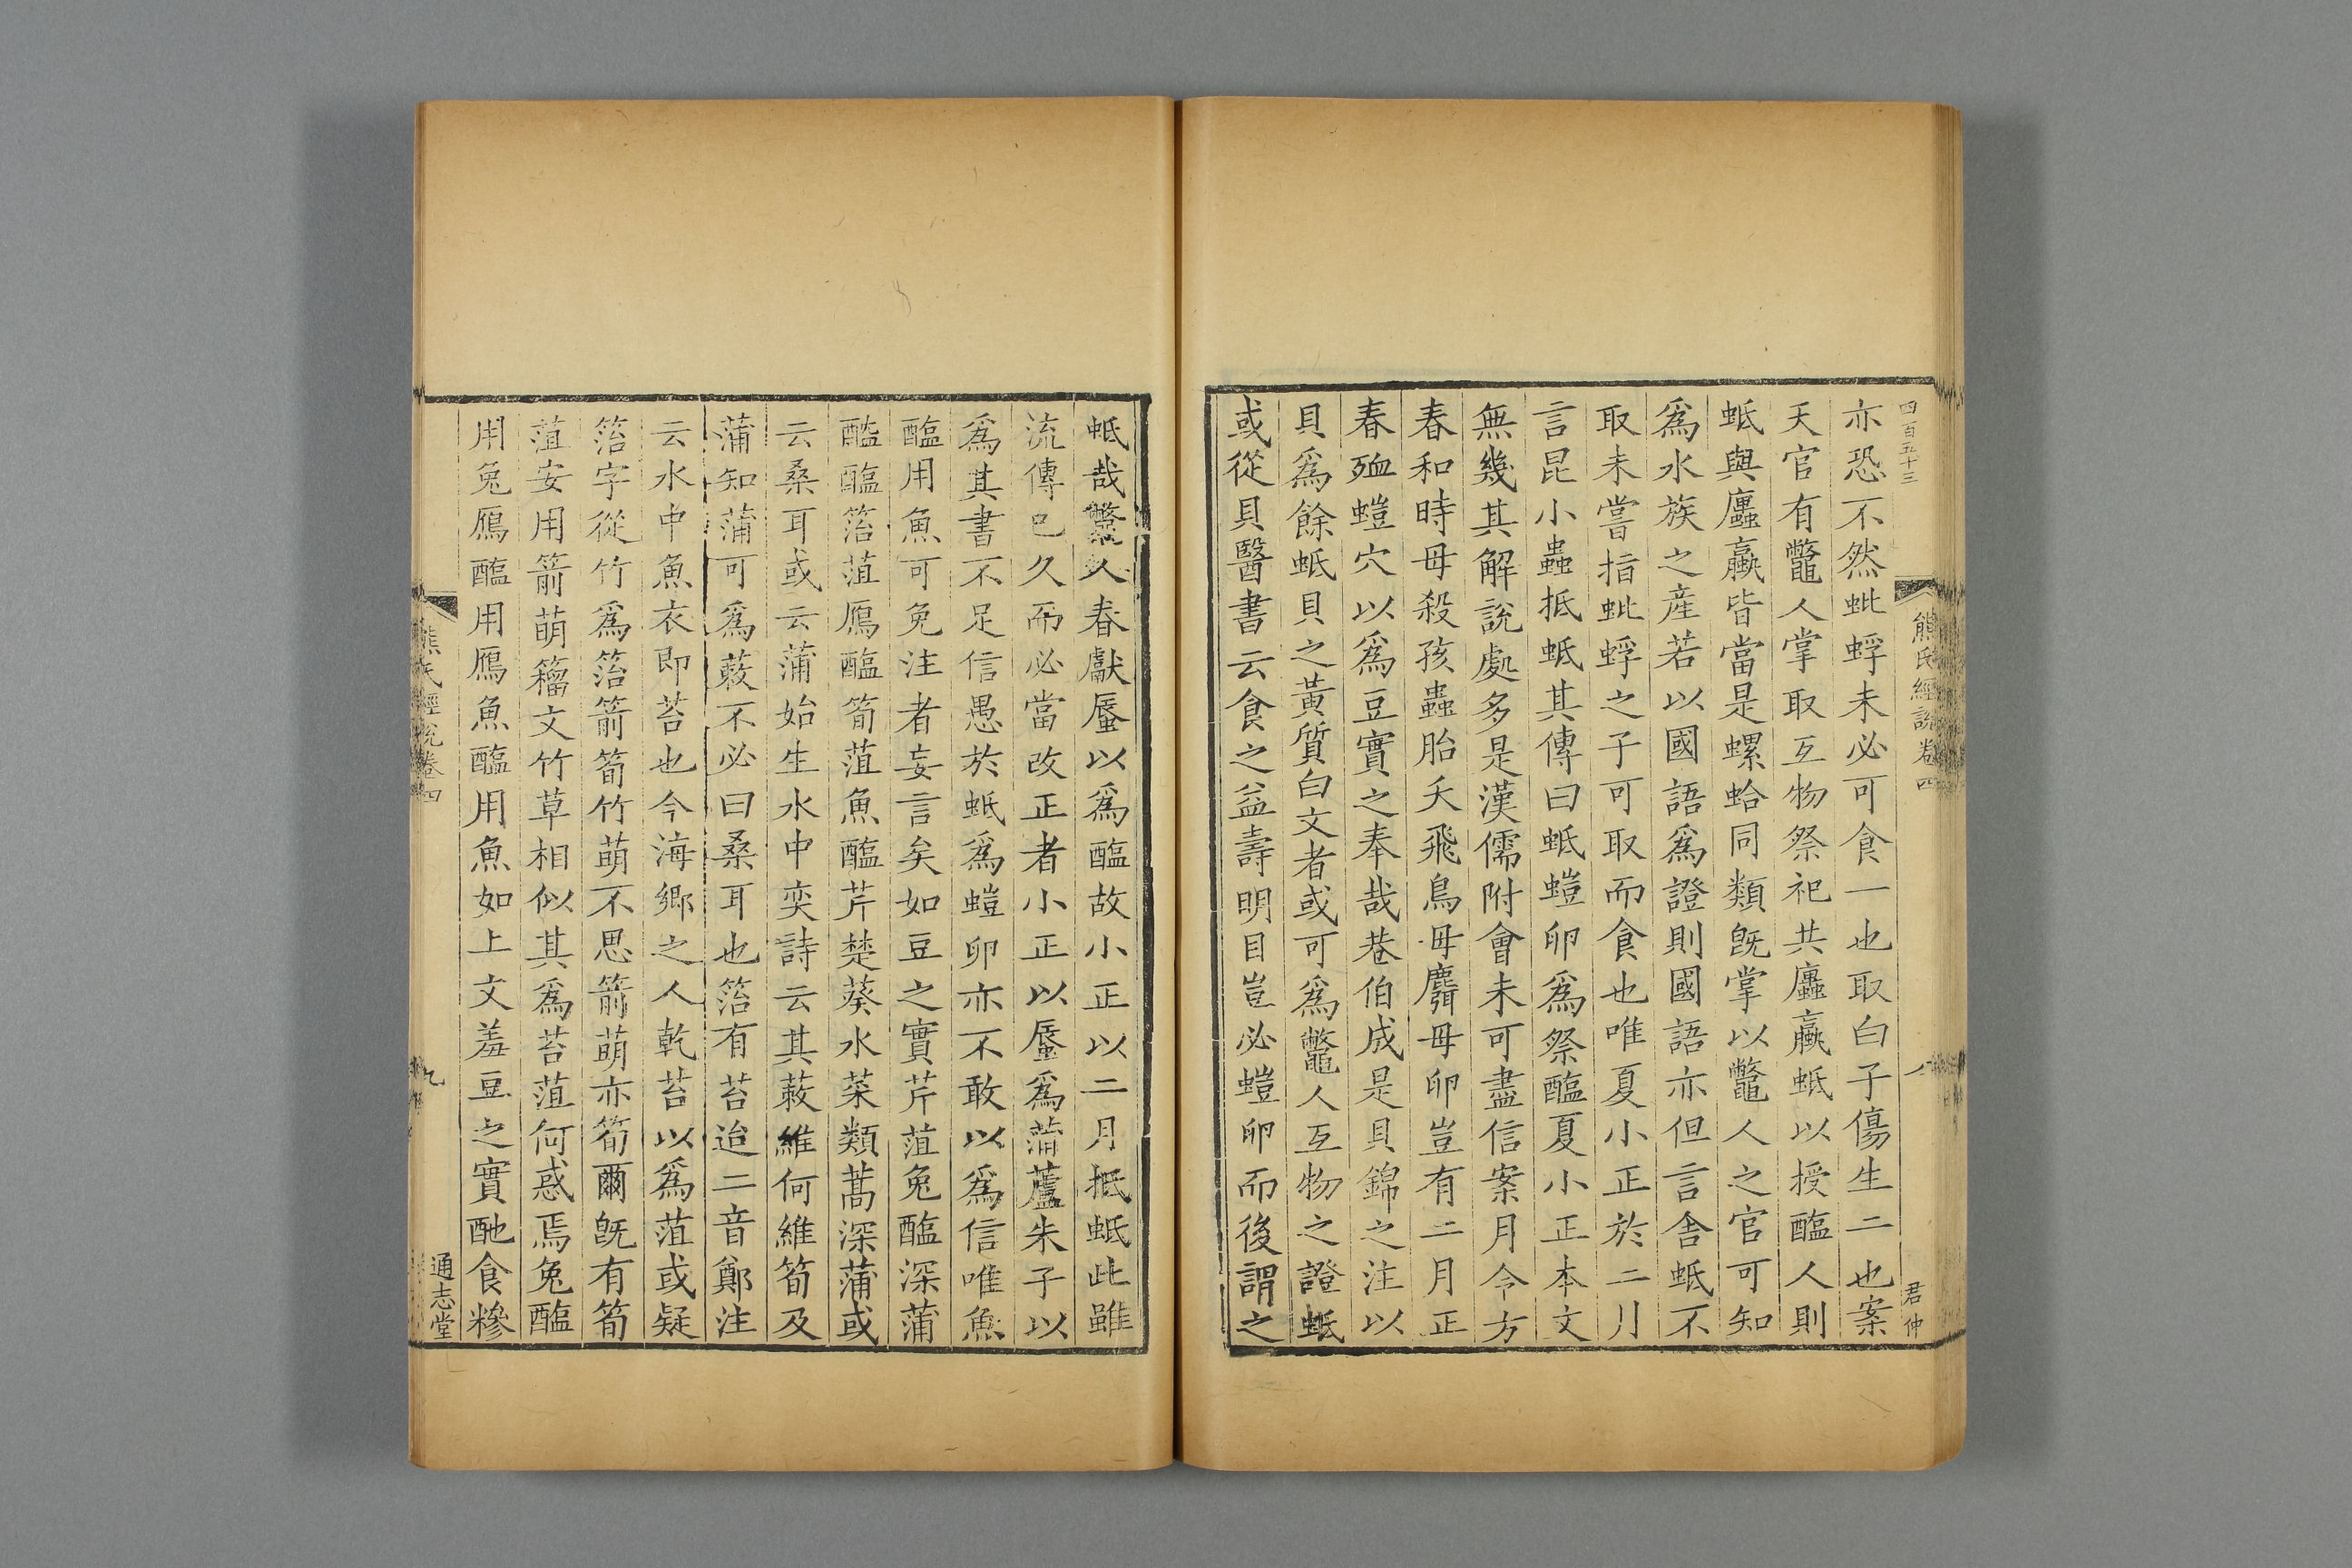 四百五十三
熊氏經說卷四
八
君仲
亦恐不然蚍蜉未必可食一也取白子傷生二也案
天官有鼈人掌取互物祭祀共蠯蠃蚳以授醢人則
蚳與蠯蠃皆當是螺蛤同類旣掌以鼈人之官可知
爲水族之産若以國語爲證則國語亦但言舍蚳不
取未嘗指蚍蜉之子可取而食也唯夏小正於二月
言昆小蟲抵蚳其傳曰蚳螘卵爲祭醢夏小正本文
無幾其解說處多是漢儒附會未可盡信案月令方
春和時毋殺孩蟲胎夭飛鳥毋麛毋卵豈有二月正
春殈螘穴以爲豆實之奉哉巷伯成是貝錦之注以
貝爲餘蚳貝之黃質白文者或可爲鼈人互物之證蚳
或從貝醫書云食之益壽明目豈必螘卵而後謂之
蚳哉鱉人春獻蜃以爲醢故小正以二月抵蚳此雖
流傳已久而必當改正者小正以蜃爲蒲蘆朱子以
爲其書不足信愚於蚳爲螘卵亦不敢以爲信唯魚
醢用魚可免注者妄言矣如豆之實芹菹兔醢深蒲
醓醢箈菹鴈醢筍菹魚醢芹楚葵水菜類蒿深蒲或
云桑耳或云蒲始生水中奕詩云其蔌維何維筍及
蒲知蒲可爲蔌不必曰桑耳也箈有苔迨二音鄭注
云水中魚衣卽苔也今海鄉之人乾苔以爲菹或疑
箈字從竹爲箈箭筍竹萌不思箭萌亦筍爾旣有筍
菹安用箭萌籀文竹草相似其爲苔菹何惑焉兔醢
用兔鴈醢用鴈魚醢用魚如上文羞豆之實酏食糝
熊氏經說卷四
九
通志堂